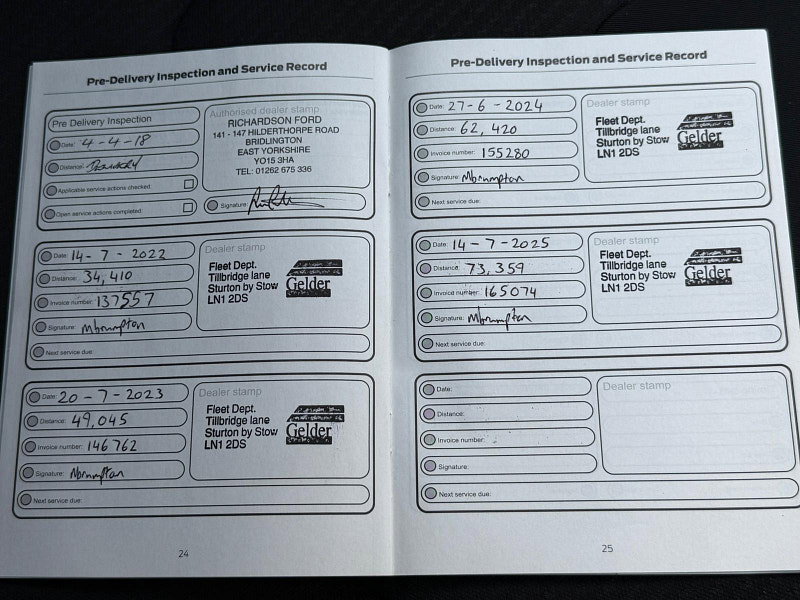 Pre-Delivery Inspection and Service Record
Pre Delivery Inspection
Date: 4-4-18
Distance:
Applicable service actions checked:
Open service actions completed:
Authorised dealer stamp
RICHARDSON FORD
141 - 147 HILDERTHORPE ROAD
BRIDLINGTON
EAST YORKSHIRE
YO15 3HA
TEL: 01262 675 336
Signature:
Date: 14-7-2022
Distance: 34,410
Invoice number: 137557
Signature: Mbrumpton
Next service due:
Dealer stamp
Fleet Dept.
Tillbridge lane
Sturton by Stow
LN1 2DS
Gelder
Date: 20-7-2023
Distance: 49,045
Invoice number: 146762
Signature: Mbrumpton
Next service due:
Dealer stamp
Fleet Dept.
Tillbridge lane
Sturton by Stow
LN1 2DS
Gelder
24
Pre-Delivery Inspection and Service Record
Date: 27-6-2024
Distance: 62,420
Invoice number: 155280
Signature: Mbrumpton
Next service due:
Dealer stamp
Fleet Dept.
Tillbridge lane
Sturton by Stow
LN1 2DS
Gelder
Date: 14-7-2025
Distance: 73,359
Invoice number: 165074
Signature: Mbrumpton
Next service due:
Dealer stamp
Fleet Dept.
Tillbridge lane
Sturton by Stow
LN1 2DS
Gelder
Date:
Distance:
Invoice number:
Signature:
Next service due:
Dealer stamp
25